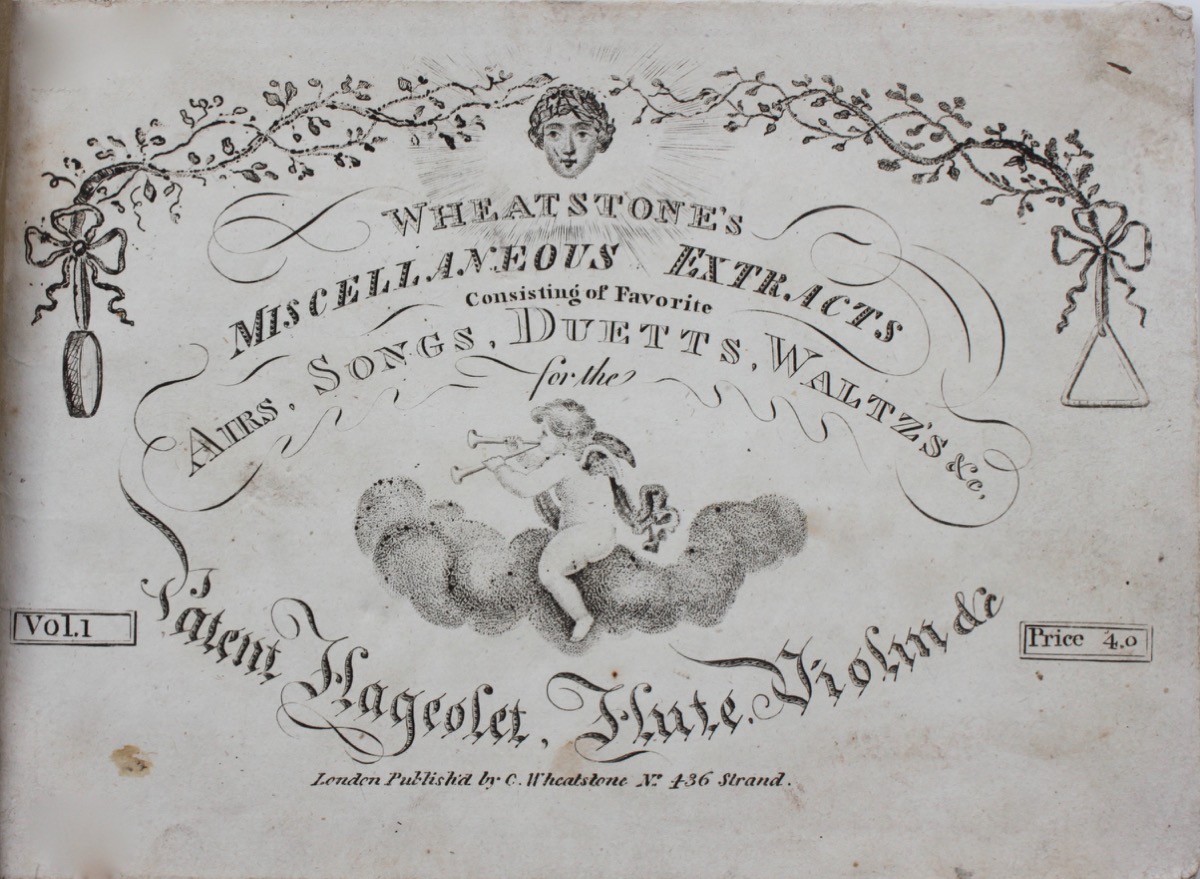 WHEATSTONE'S
MISCELLANEOUS EXTRACTS
Consisting of Favorite
AIRS, SONGS, DUETTS, WALTZ'S &c,
for the
Patent Flageolet, Flute, Violin &c
Vol.1
Price 4.0
London Publish'd by C. Wheatstone No. 436 Strand.